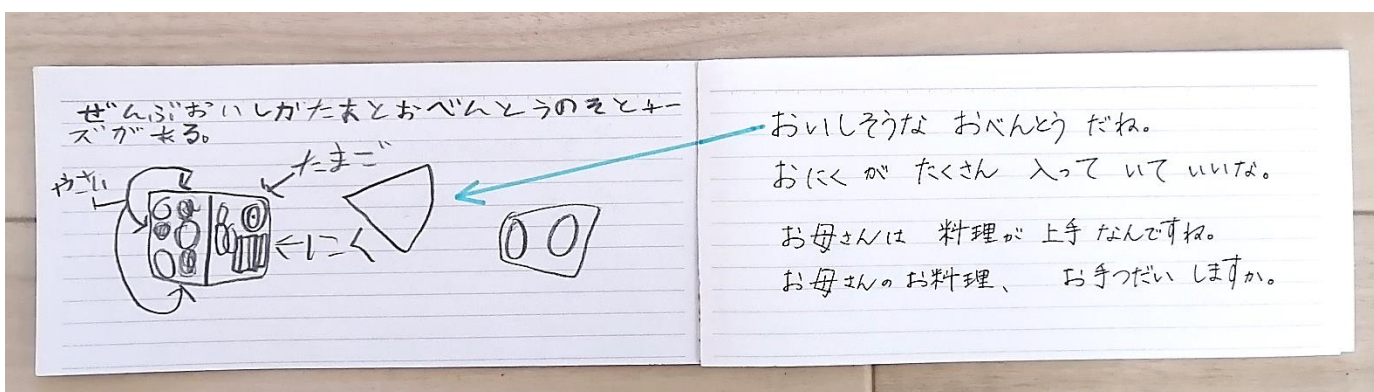 ぜんぶおいしがたまとおべんとうのそとチー
ズがある。
たまご
やさい
にく
おいしそうな おべんとう だね。
おにく が たくさん 入って いて いいな。
お母さんは 料理が 上手 なんですね。
お母さんのお料理、 お手つだい しますか。